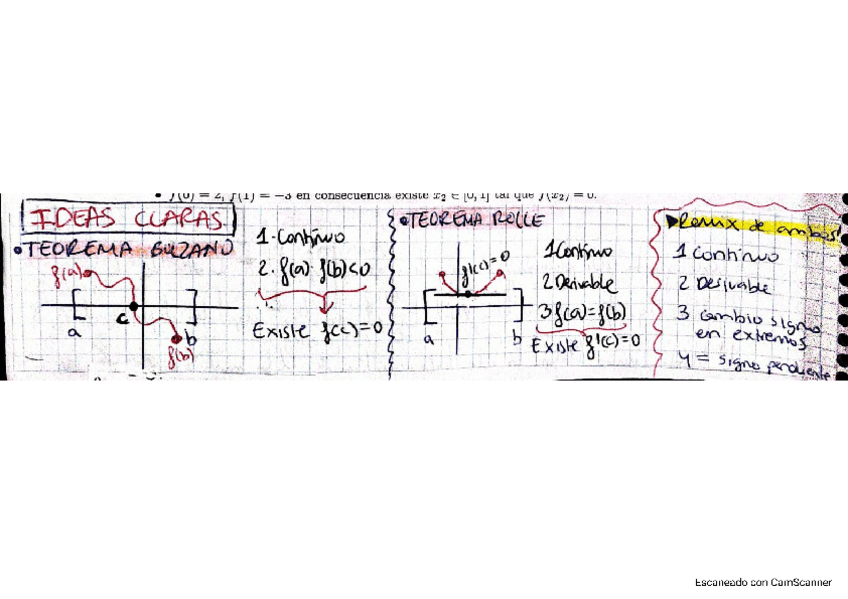 • f(0) = 2, f(1) = −3 en consecuencia existe x₂ ∈ [0, 1] tal que f(x₂) = 0.
IDEAS CLARAS
• TEOREMA BOLZANO
f(a)
c
a
b
f(b)
1. Continuo
2. f(a) · f(b) < 0
Existe f(c) = 0
• TEOREMA ROLLE
f'(c) = 0
a
b
1 Continuo
2 Derivable
3 f(a) = f(b)
Existe f'(c) = 0
Remix de ambos
1 Continuo
2 Derivable
3 cambio signo
en extremos
4 = signo pendiente
Escaneado con CamScanner